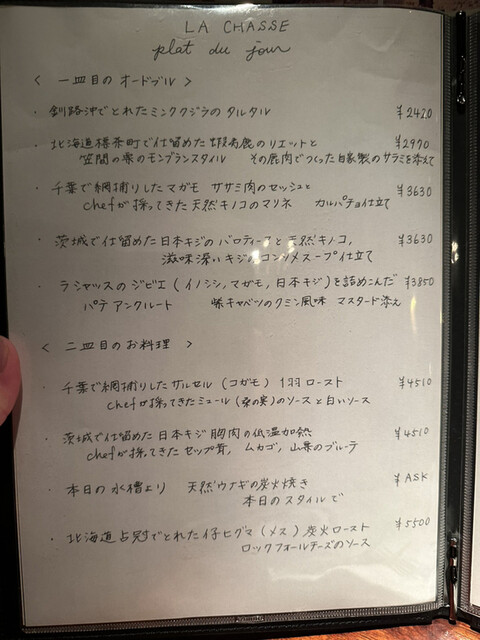 LA CHASSE
plat du jour
< 一皿目のオードブル >
・釧路沖でとれたミンククジラのタルタル ¥2420
・北海道標茶町で仕留めた蝦夷鹿のリエットと ¥2970
笠間の栗のモンブランスタイル その鹿肉でつくった自家製のサラミを添えて
・千葉で網捕りしたマガモ ササミ肉のセッシュと ¥3630
chefが採ってきた天然キノコのマリネ カルパチョ仕立て
・茨城で仕留めた日本キジのバロティーヌと天然キノコ, ¥3630
滋味深いキジのコンソメスープ仕立て
・ラシャッスのジビエ(イノシシ,マガモ,日本キジ)を詰めこんだ ¥3850
パテアンクルート 紫キャベツのクミン風味 マスタード添え
< 二皿目のお料理 >
・千葉で網捕りしたサルセル(コガモ) 1羽ロースト ¥4510
chefが採ってきたミュール(桑の実)のソースと白いソース
・茨城で仕留めた日本キジ胸肉の低温加熱 ¥4510
chefが採ってきたセップ茸, ムカゴ, 山栗のブルーテ
・本日の水槽より 天然ウナギの炭火焼き ¥ASK
本日のスタイルで
・北海道占冠でとれた仔ヒグマ(メス)炭火ロースト ¥5500
ロックフォールチーズのソース